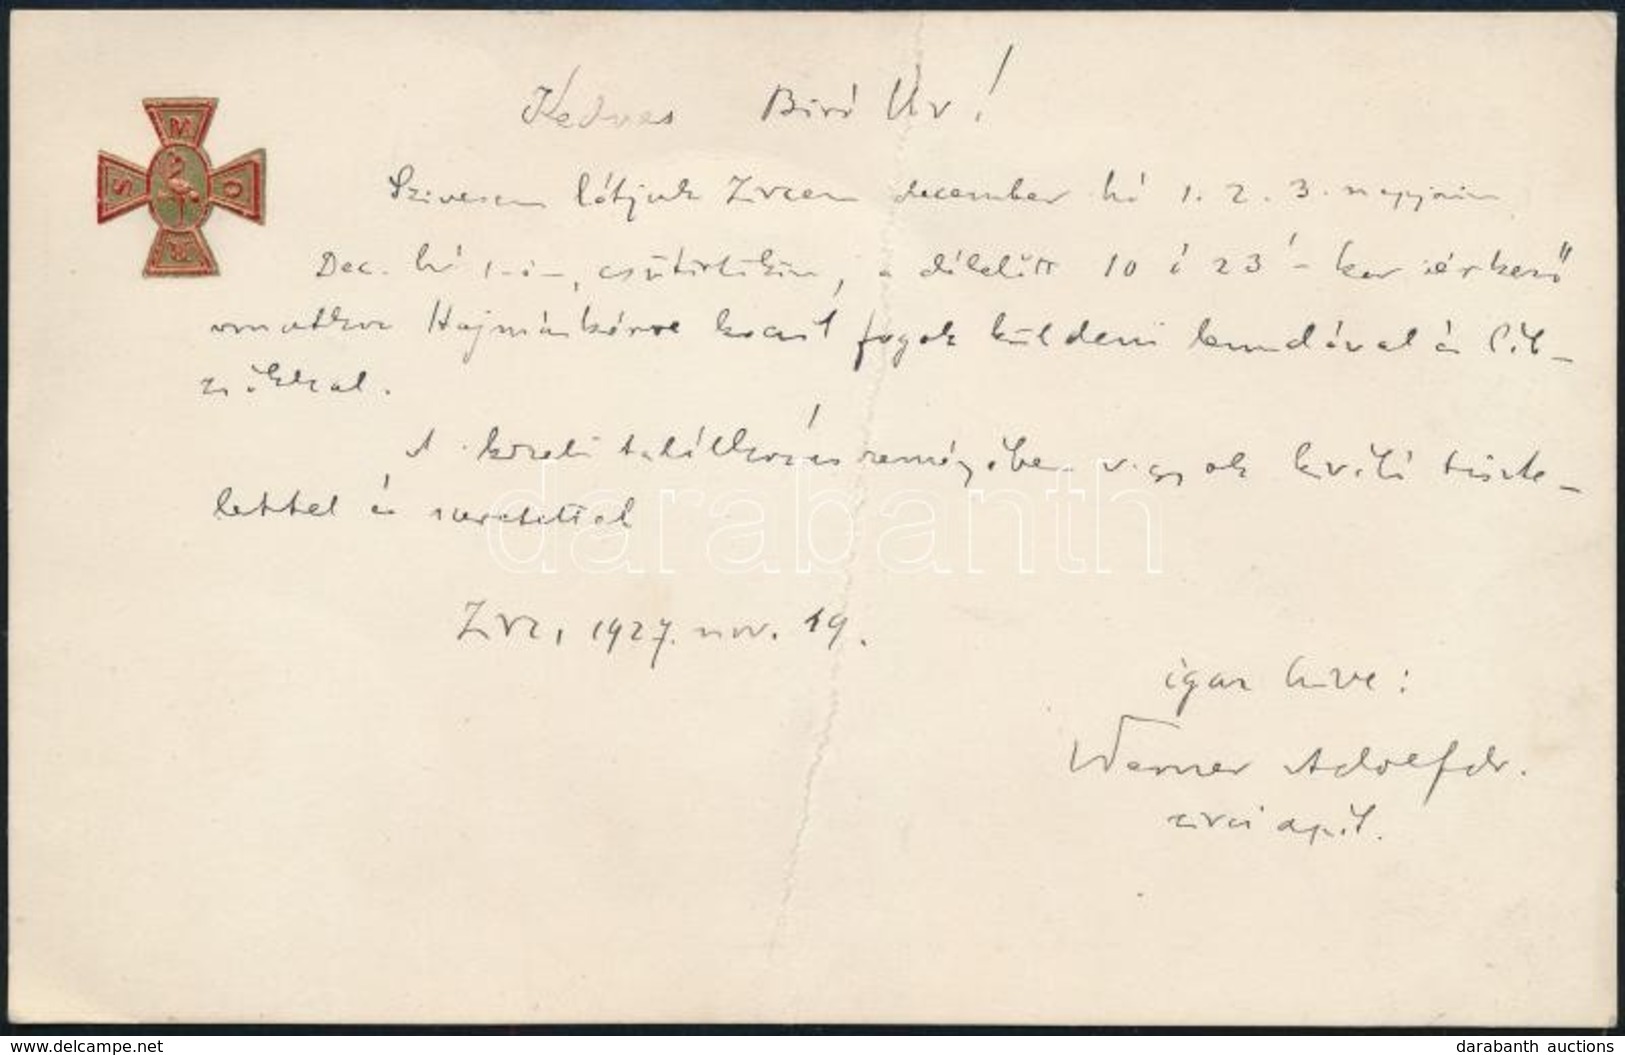 Kedves Biró Úr!
Szivesen látjuk Zircen december hó 1. 2. 3. napjain
Dec. hó 1-én, csütörtökön, a délelőtt 10 ó 23'-kor érkező
vonathoz Hajmáskérre kocsit fogok küldeni bundával és láb-
zsákkal.
A közeli találkozás reményében vagyok kiváló tiszte-
lettel és szeretettel
Zirc, 1927. nov. 19.
igaz hive:
Werner Adolf dr.
zirci apát.
M
O
R
S
darabanth
www.delcampe.net
darabanth auctions